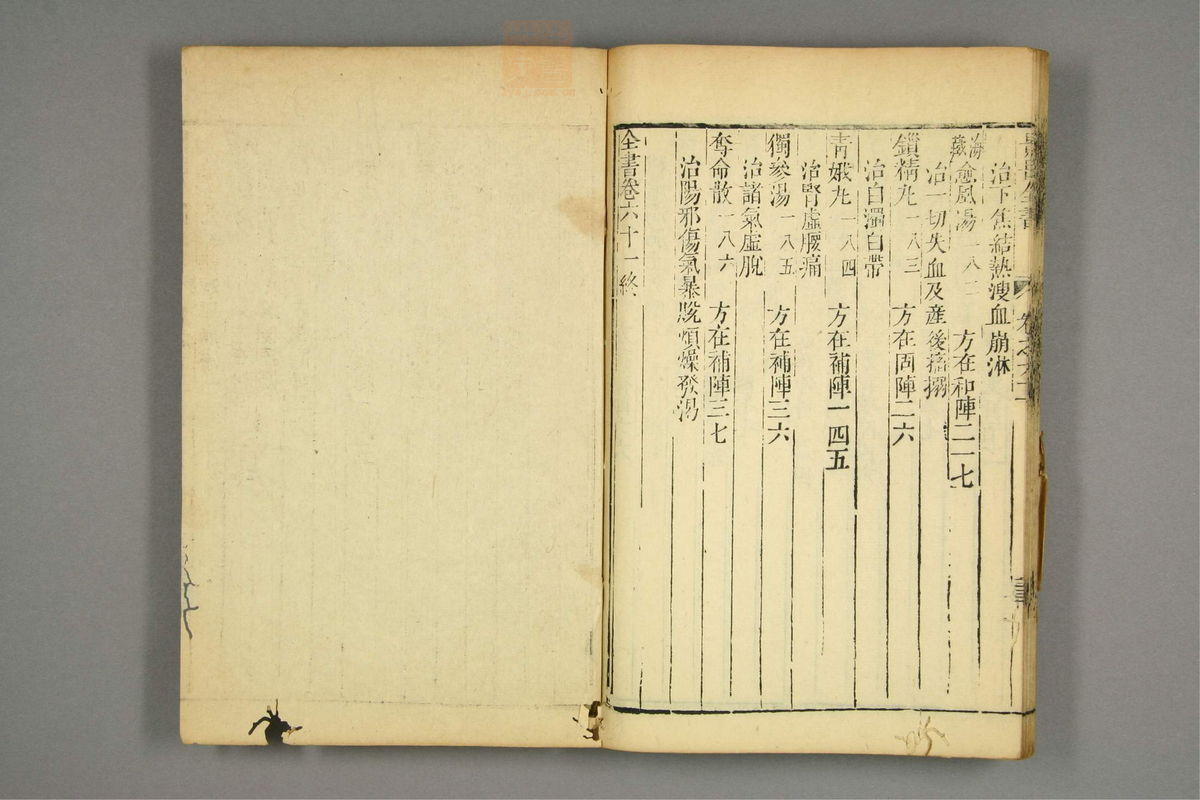 治下焦結熱溲血崩淋
海藏愈風湯一八二　方在和陣二一七
治一切失血及產後搐搦
鎖精丸一八三　方在固陣二六
治白濁白帶
青娥丸一八四　方在補陣一四五
治腎虛腰痛
獨參湯一八五　方在補陣三六
治諸氣虛脫
奪命散一八六　方在補陣三七
治陽邪傷氣暴脫煩燥發渴
全書卷六十一終